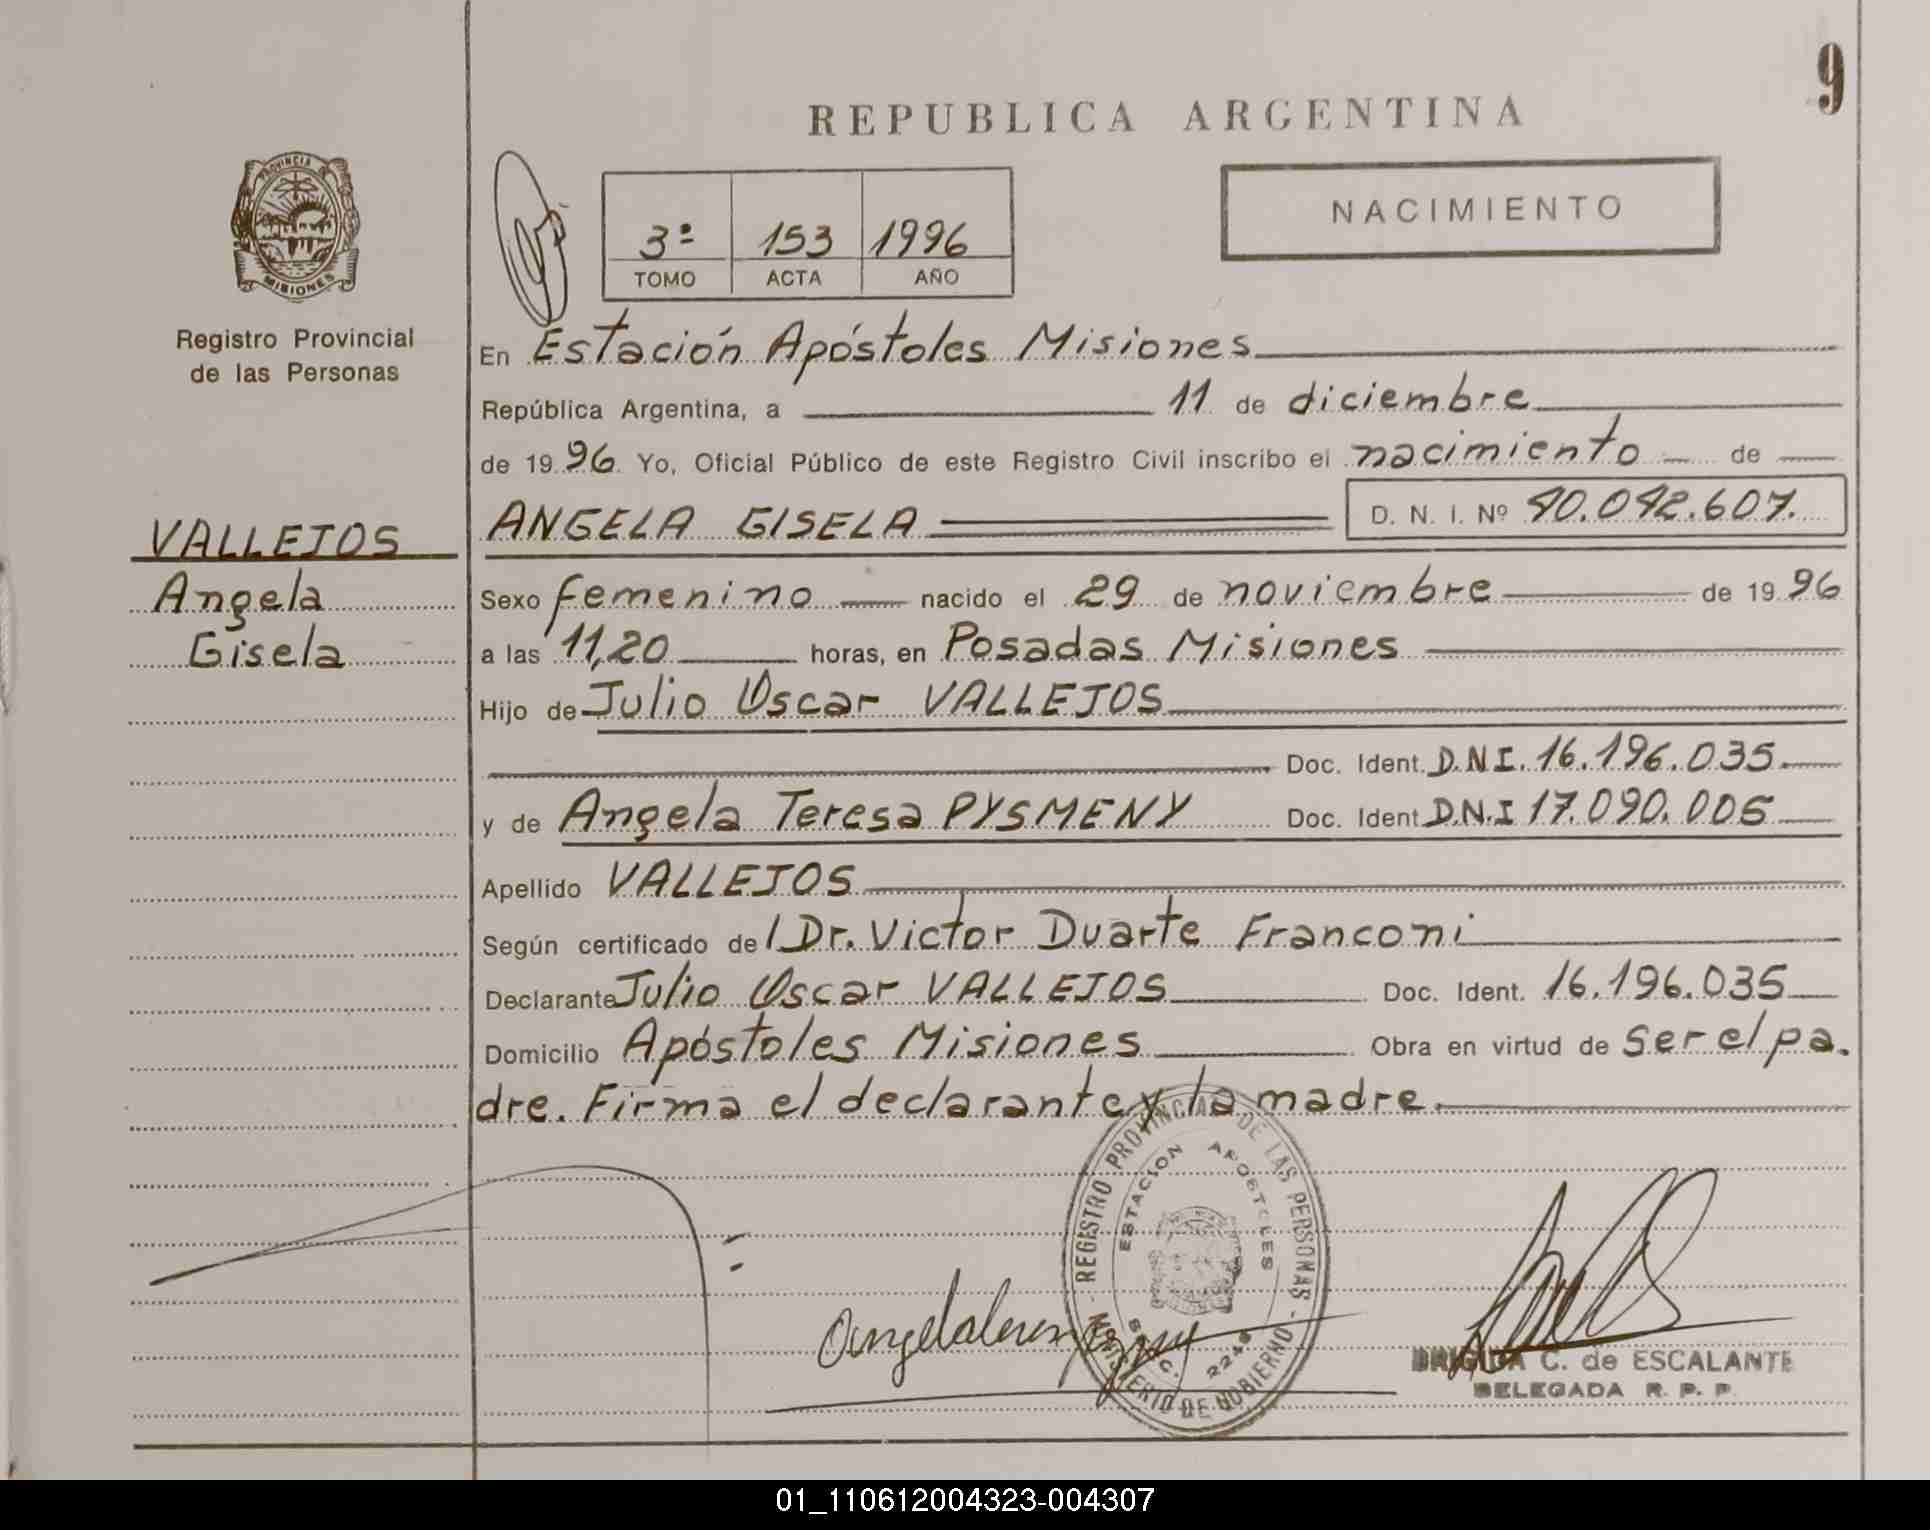 9
REPUBLICA ARGENTINA
PROVINCIA DE
MISIONES
Registro Provincial
de las Personas
3º 153 1996
TOMO ACTA AÑO
NACIMIENTO
En Estación Apóstoles Misiones
República Argentina, a 11 de diciembre
de 1996 Yo, Oficial Público de este Registro Civil inscribo el nacimiento de
VALLEJOS
Angela
Gisela
ANGELA GISELA D. N. I. Nº 40.042.607.
Sexo femenino nacido el 29 de noviembre de 1996
a las 11,20 horas, en Posadas Misiones
Hijo de Julio Oscar VALLEJOS
Doc. Ident. D.N.I. 16.196.035
y de Angela Teresa PYSMENY Doc. Ident. D.N.I 17.090.005
Apellido VALLEJOS
Según certificado de l Dr. Victor Duarte Franconi
Declarante Julio Oscar VALLEJOS Doc. Ident. 16.196.035
Domicilio Apóstoles Misiones Obra en virtud de ser el pa.
dre. Firma el declarante y la madre.
REGISTRO PROVINCIAL DE LAS PERSONAS - MINISTERIO DE GOBIERNO -
ESTACION APOSTOLES
2249
BRIGIDA C. de ESCALANTE
DELEGADA R. P. P.
01_110612004323-004307